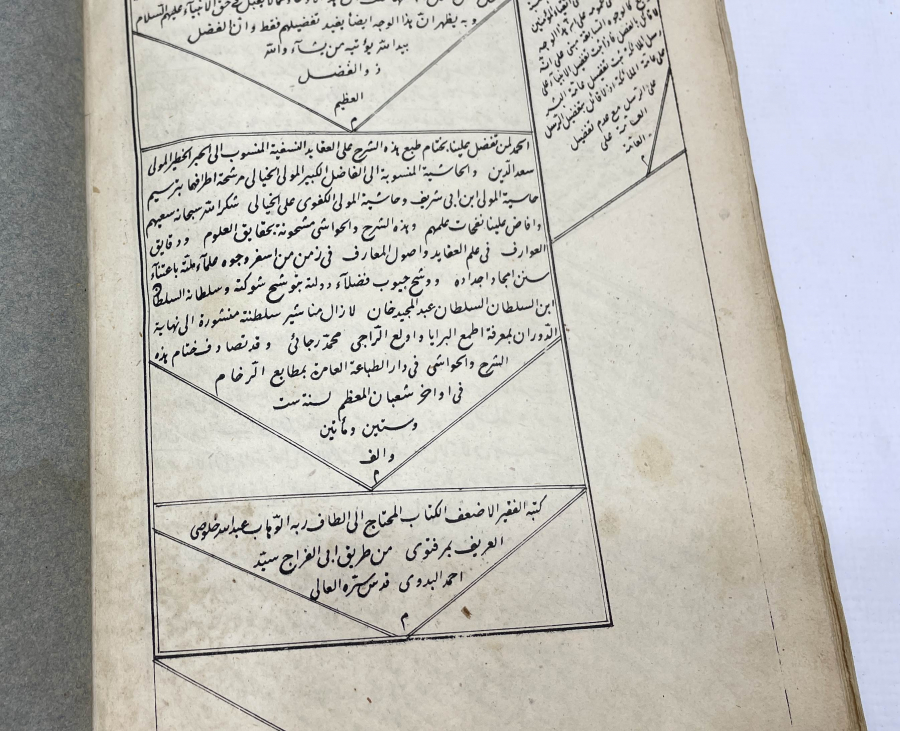 وبه يظهر ان هذا الوجه ايضا يفيد تفضيلهم فقط وان الفضل
بيد الله يؤتيه من يشآء والله
ذو الفضل
العظيم
م
الحمد لمن تفضل علينا بختام طبع هذه الشرح على العقايد النسفية المنسوب الى الحبر الخطير المولى
سعد الدين والحاشية المنسوبة الى الفاضل الكبير المولى الخيالى مرشحة اطرافها بترسيم
حاشية المولى ابن ابى شريف وحاشية المولى الكفوى على الخيالى شكر الله سبحانه سعيهم
وافاض علينا نفحات علمهم وهذه الشرح والحواشى مشحونة بحقايق العلوم ودقايق
العوارف فى علم العقايد واصول المعارف فى زمن من اسفر وجوه علمآء ملته باعتنآء
سنن امجاد اجداده ووشح جيوب فضلآء دولته بتوشيح شوكته وسلطانه السلطان
ابن السلطان السلطان عبد المجيد خان لازال مناشير سلطنته منشورة الى نهاية
الدوران بمعرفة اطمع البرايا واولع الراجى محمد رجائى وقد تصادف ختام هذه
الشرح والحواشى فى دار الطباعة العامرة بمطابع الرخام
فى اواخر شعبان المعظم لسنة ست
وستين ومأتين
والف
م
كتبه الفقير الاضعف الكتاب المحتاج الى الطاف ربه الوهاب عبد الله خلوصى
العريف بمرفتوى من طريق ابى الفراج سيد
احمد البدوى قدس سره العالى
م
على الرسل مع عدم تفضيل
العامة على
العامة
م